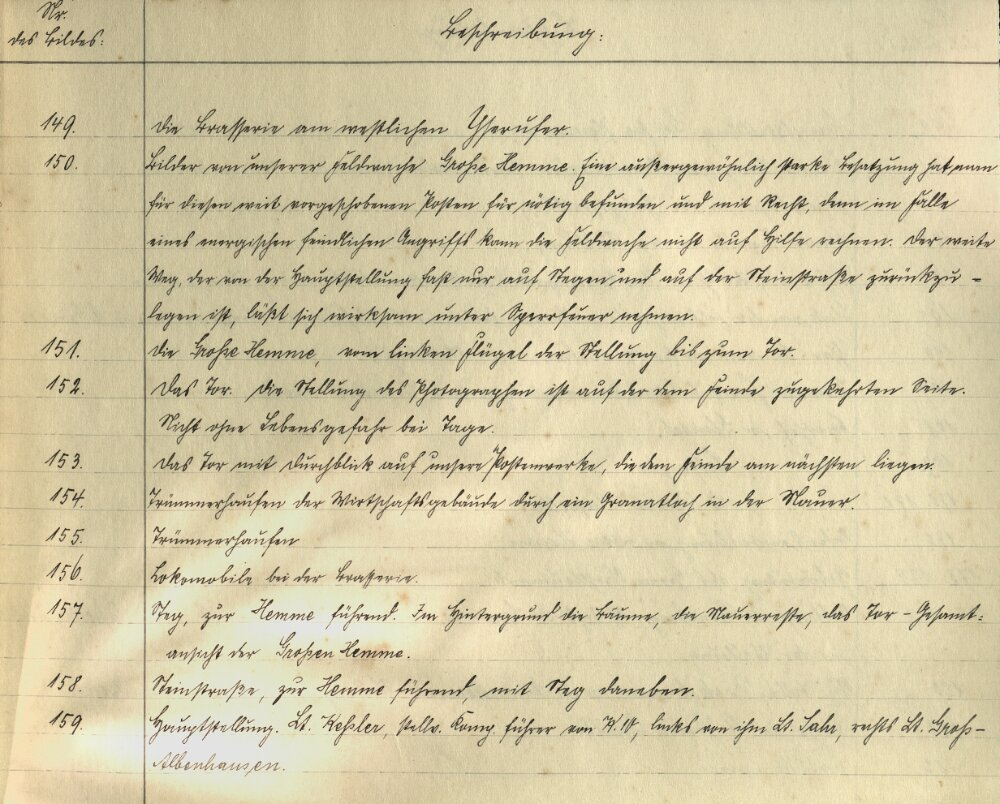 Nr.
des Bildes:
Beschreibung:
149. Die Brasserie am westlichen Yserufer.
150. Bilder von unserer Feldwache Große Hemme. Eine außergewöhnlich starke Besatzung hat man
für diesen weit vorgeschobenen Posten für nötig befunden und mit Recht, denn im Falle
eines energischen feindlichen Angriffs kann die Feldwache nicht auf Hilfe rechnen. Der weite
Weg, der von der Hauptstellung fast nur auf Stegen und auf der Steinstraße zurückzu-
legen ist, läßt sich wirksam unter Sperrfeuer nehmen.
151. Die Große Hemme, vom linken Flügel der Stellung bis zum Tor.
152. Das Tor. Die Stellung des Photographen ist auf der dem Feinde zugekehrten Seite.
Nicht ohne Lebensgefahr bei Tage.
153. Das Tor mit Durchblick auf unsere Postenwerke, die dem Feinde am nächsten liegen.
154. Trümmerhaufen der Wirtschaftsgebäude durch ein Granatloch in der Mauer.
155. Trümmerhaufen
156. Lokomobile bei der Brasserie.
157. Steg, zur Hemme führend. Im Hintergrund die Bäume, die Mauerreste, das Tor - Gesamt:
ansicht der Großen Hemme.
158. Steinstraße, zur Hemme führend, mit Steg daneben.
159. Hauptstellung. Lt. Keßler, stellv. Komp. führer von, links von ihm Lt. Sahr, rechts Lt. Groß-
Albenhausen.